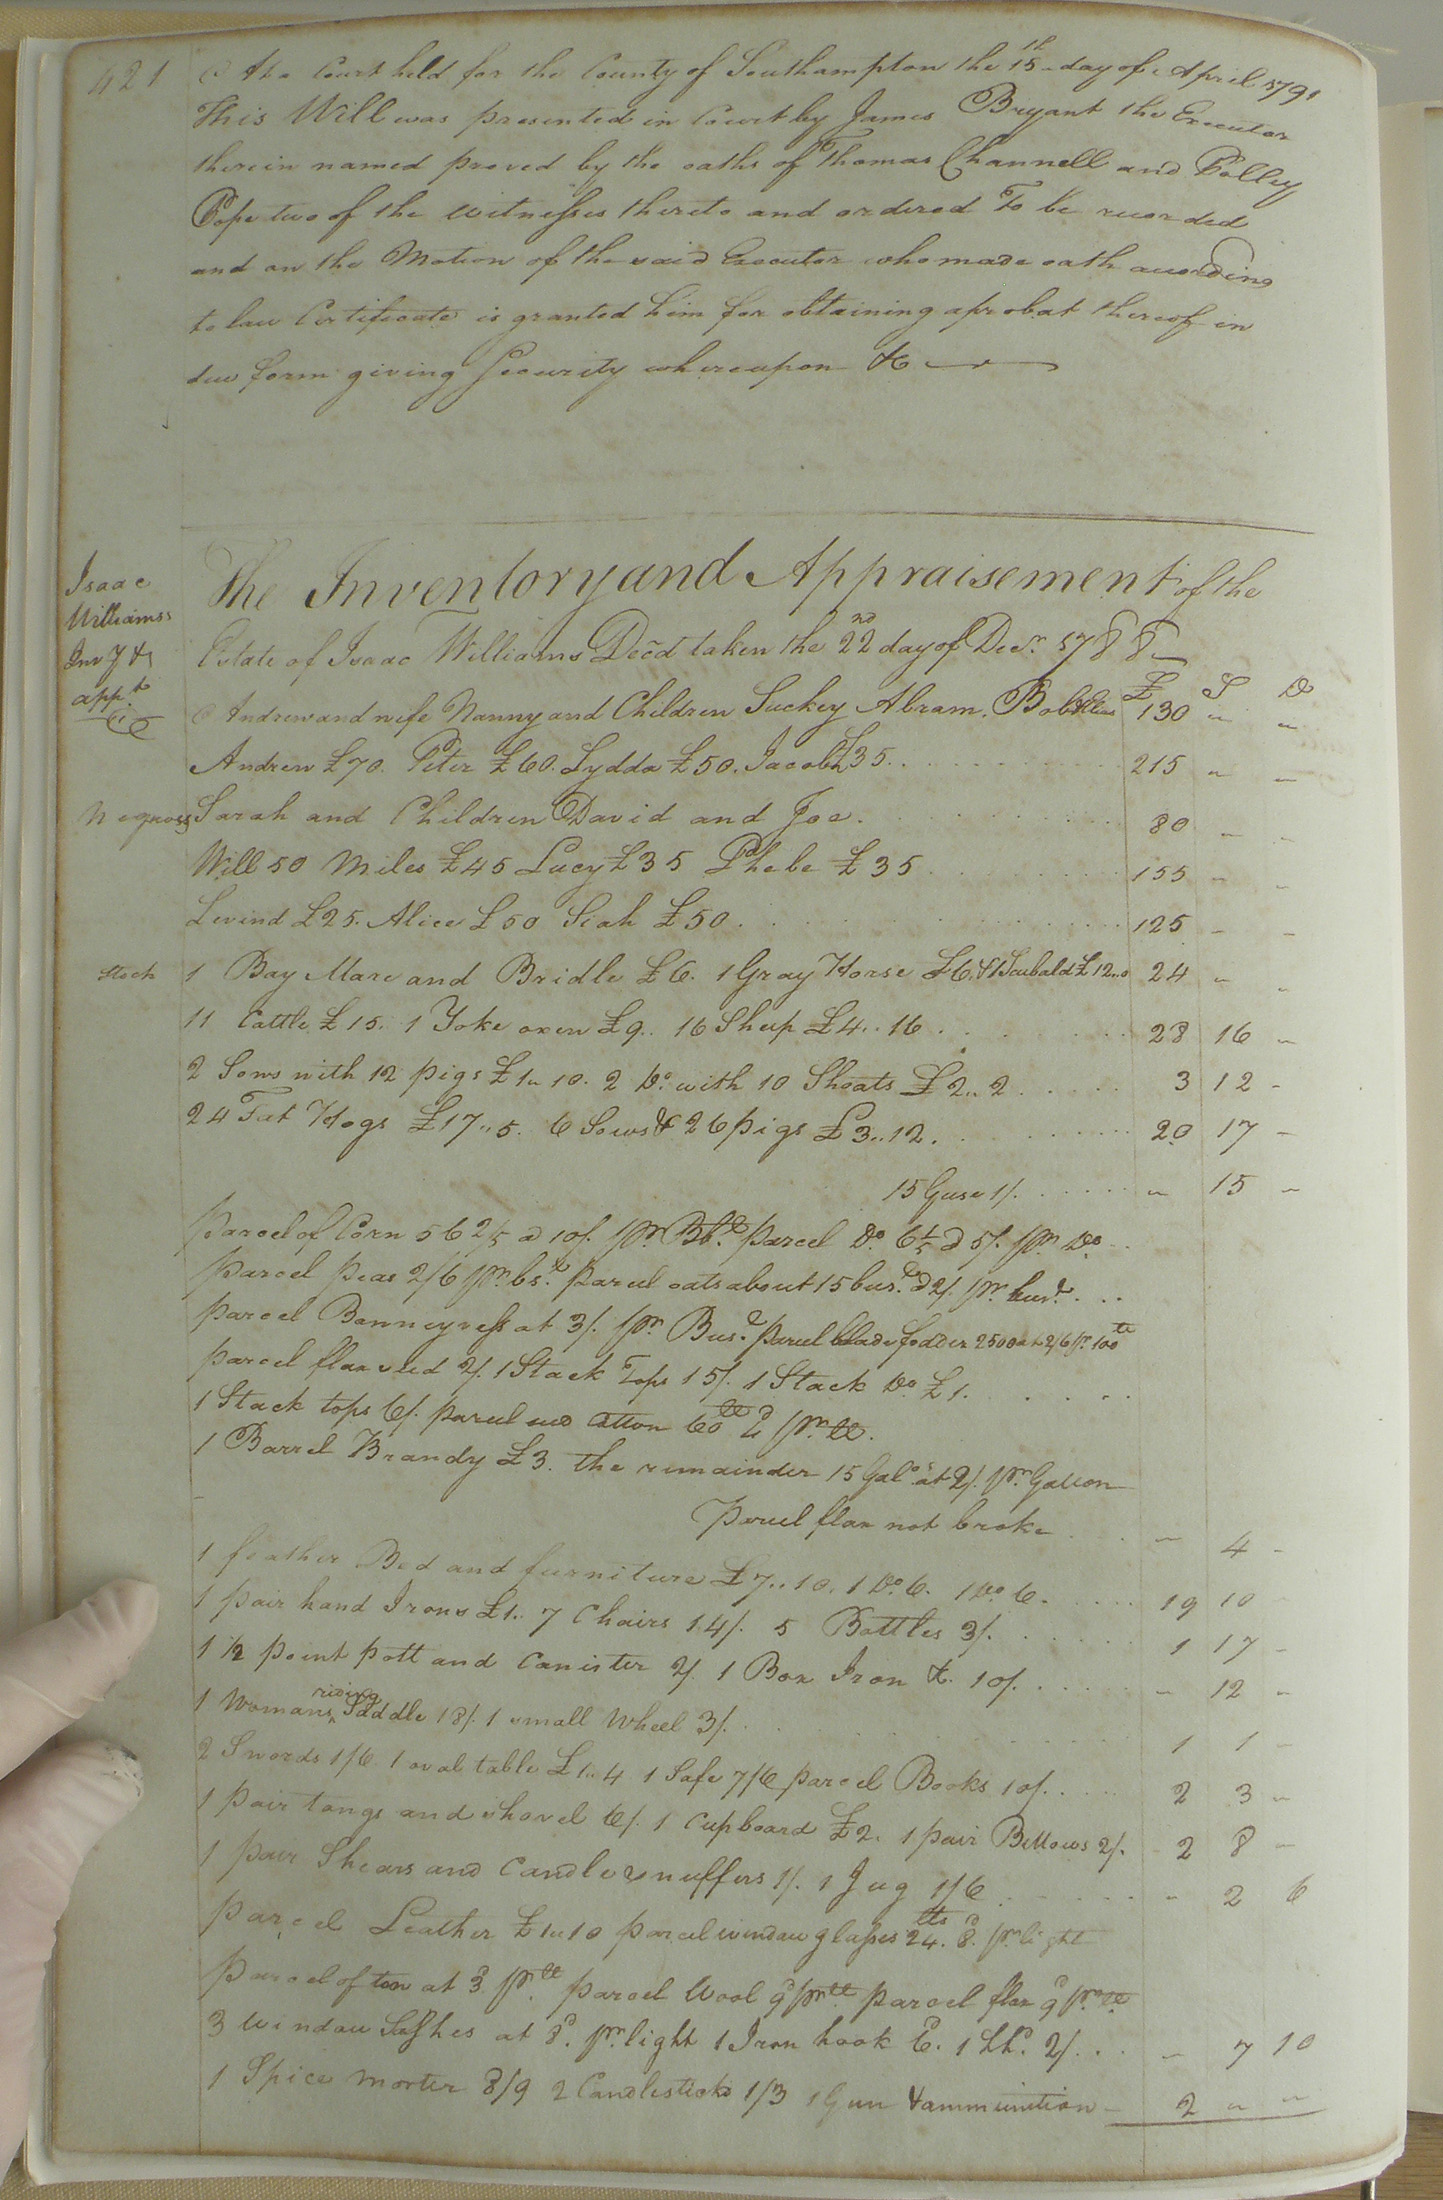 421
At a Court held for the County of Southampton the 15th day of April 1791
This Will was presented in Court by James Bryant the Executor
therein named proved by the oaths of Thomas Channell and Polley
Pope two of the witnesses thereto and ordered To be recorded
and on the Motion of the said Executor who made oath according
to law Certificate is granted him for obtaining aprobat thereof in
due form giving Security whereupon &c
Isaac
Williamss
Inv y &
app.t
The Inventory and Appraisement of the
Estate of Isaac Williams Decd taken the 22nd day of Decr. 1788
£ S D
Andrew and wife Nanny and Children Suckey Abram. Bob 130 " "
Andrew £70. Peter £60. Lydda £50. Jacob £35 . . 215 " "
Negroes Sarah and Children David and Joe . 80 " "
Will 50 Miles £45 Lucy £35 Phebe £35 155 " "
Levind £25. Alice £50 Siah £50 . 125 " "
Stock 1 Bay Mare and Bridle £6. 1 Gray Horse £6. & 1 Scubald £12..0 24 " "
11 Cattle £15. 1 Yoke oxen £9.. 16 Sheep £4..16 . 28 16 "
2 Sows with 12 pigs £1..10. 2 Do. with 10 Shoats £2..2 3 12 "
24 Fat Hogs £17..5. 6 Sows & 26 pigs £3..12 . 20 17 "
15 Guse 1/. " 15 "
Parcel of Corn 56 2/5 a 10/. pr Bbl. parcel Do. 6 1/5 a 5/. pr Do
Parcel Peas 2/6 pr. bsl. parcel oats about 15 busl. a 2/. pr. bus.
Parcel Bonneyvess at 3/. pr Busl. parcel blade fodder 2500 at 2/6 pr. 100
Parcel flax seed 2/. 1 Stack Tops 15/. 1 Stack Do £1.
1 Stack tops 6/. parcel seed Cotton 60 lb 2d pr. lb.
1 Barrel Brandy £3. the remainder 15 Galo.s at 2/. pr. Gallon
Parcel flax not broke " 4 "
1 feather Bed and furniture £7..10. 1 Do. 6. 1 Do 6. 19 10
1 pair hand Irons £1.. 7 Chairs 14/. 5 Bottles 3/. 1 17 "
1 1/2 point pott and Canister 2/. 1 Box Iron &. 10/. " 12 "
1 Womans riding Saddle 18/. 1 small Wheel 3/. 1 1 "
2 Swords 1/6 1 oval table £1..4 1 Safe 7/6 parcel Books 10/. 2 3 "
1 pair tongs and shovel 6/. 1 Cupboard £2. 1 pair Bellows 2/. 2 8 "
1 pair Shears and Candle snuffers 1/. 1 Jug 1/6 " 2 6
Parcel Leather £1..10 parcel window glasses 24. 8d. pr light
Parcel of tow at 3d pr lb. parcel Wool 9d pr lb. parcel flax 9d pr lb
3 window Sashes at 8d. pr. light 1 Iron hook 6d. 1 hhd. 2/. . . " 7 10
1 Spice morter 8/9 2 Candlesticks 1/3 1 Gun & ammunition 2 " "